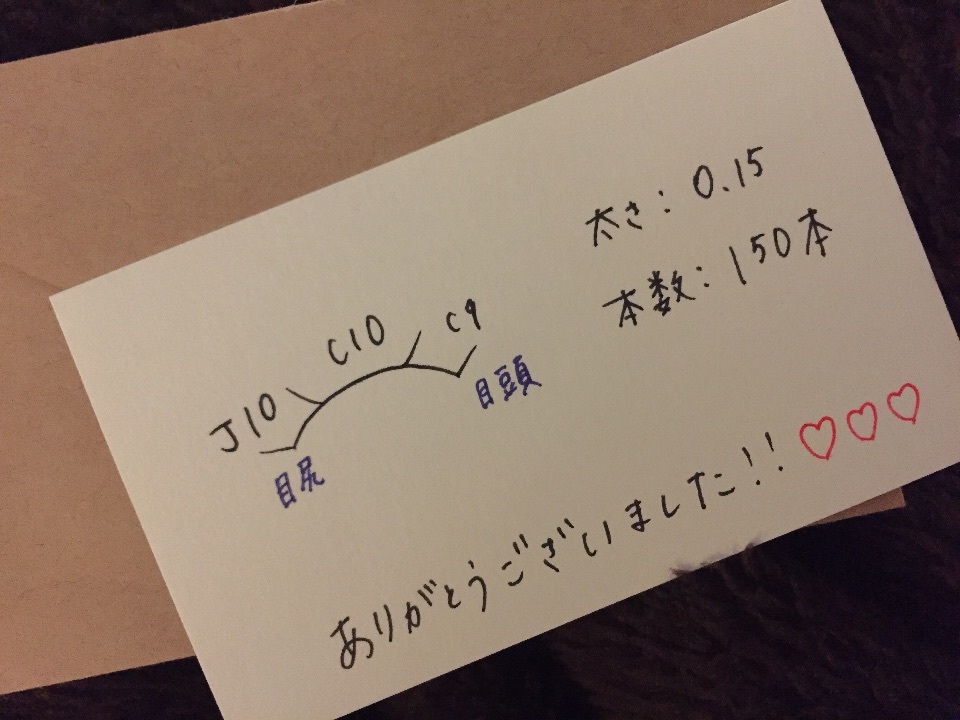 太さ: 0.15
本数: 150本
J10 C10 C9
目尻 目頭
ありがとうございました!! ♡♡♡